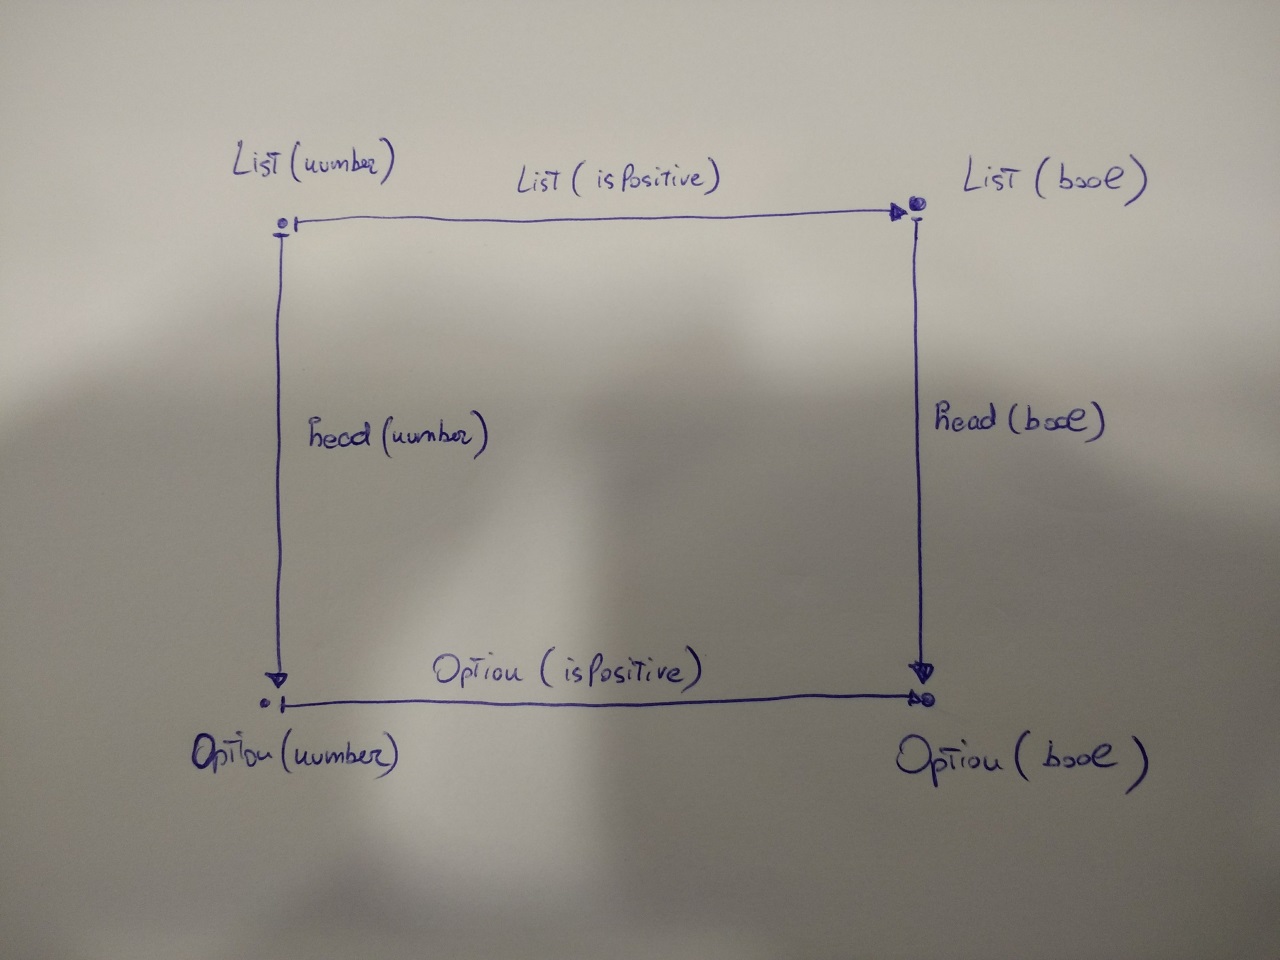 List (number)
List ( isPositive)
List ( bool)
head (number)
head (bool)
Option ( isPositive)
Option (number)
Option ( bool )